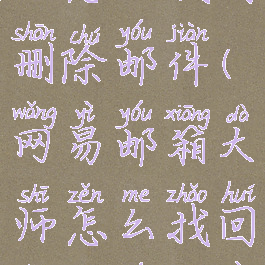 shān chú yóu jiàn
删除邮件(
wǎng yì yóu xiāng dà
网易邮箱大
shī zěn me zhǎo huí
师怎么找回